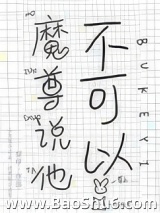 魔尊说他
不可以
BUKEYI
www.BaoShu6.com